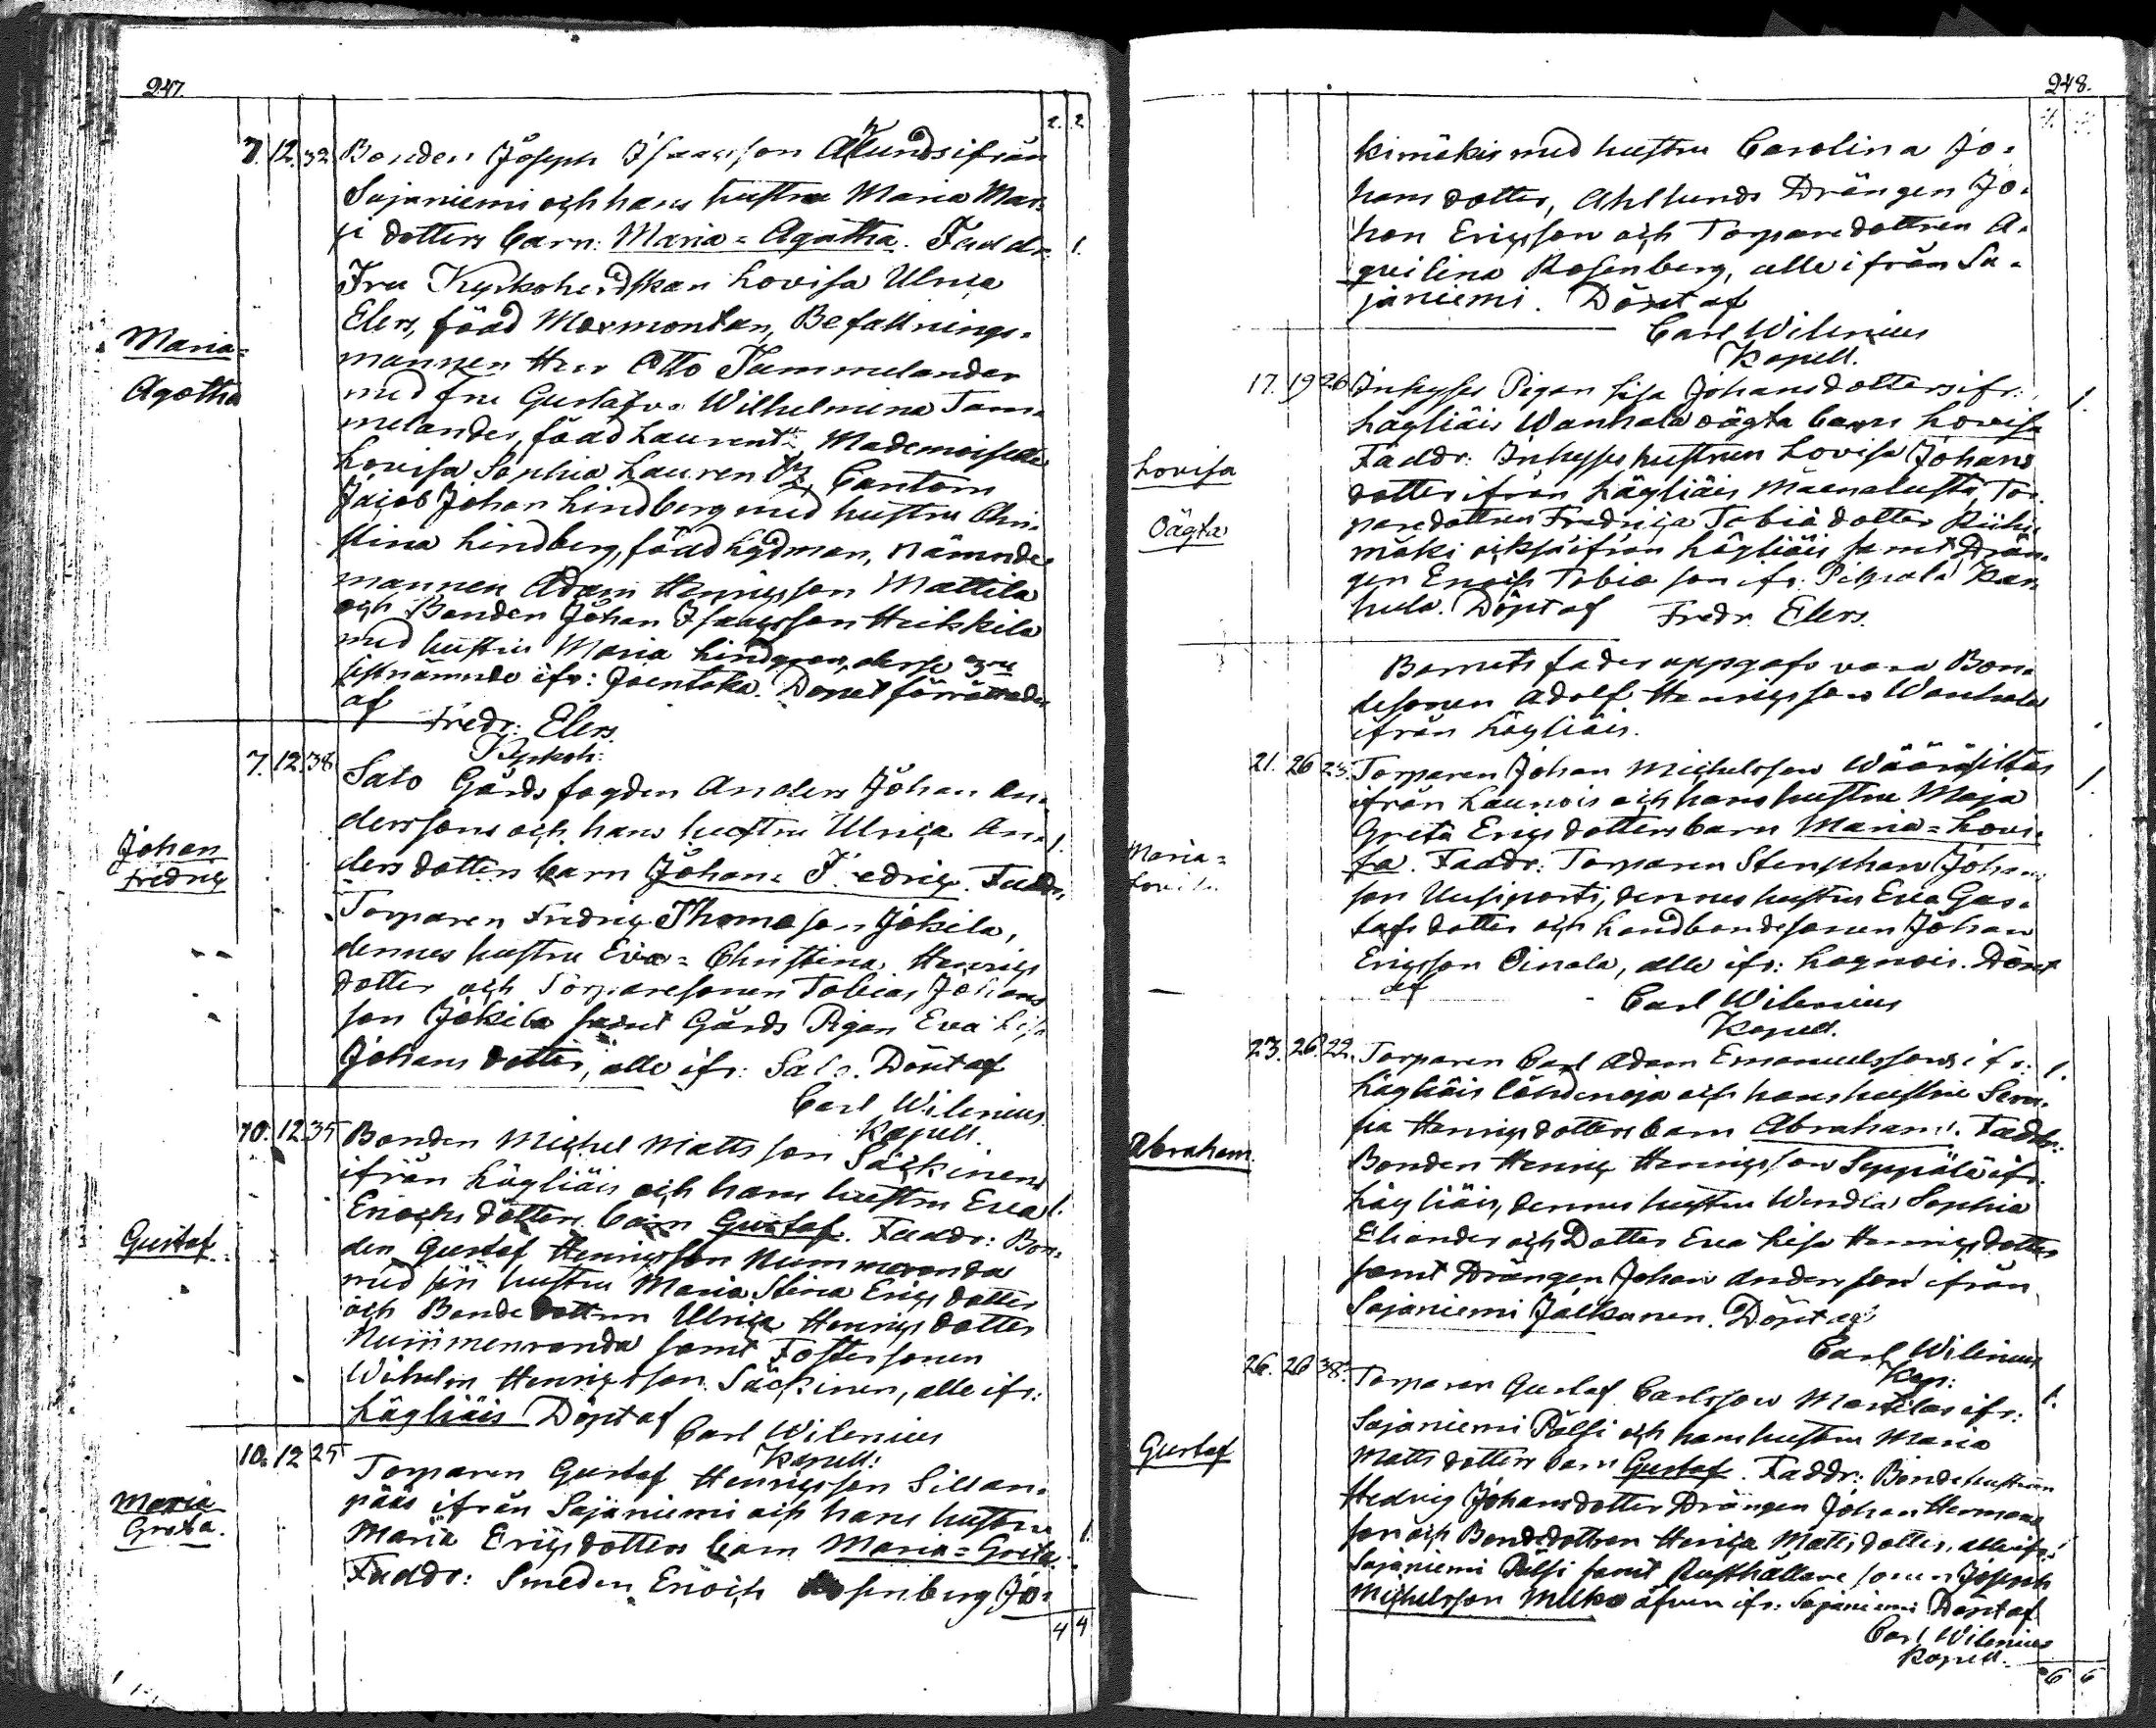 247.
2. 2
7. 12. 32 Bonden Joseph Isaacsson Ahlunds ifrån
Sajaniemi och hans hustru Maria Mar-
dotters barn: Maria=Agatha. Faddr. 1.
Fru Kyrkoherdskan Lovisa Ulrica
Elers, född Moxmontan, Befallnings-
Maria=
mannen Herr Otto Tammelander
Agatha
med fru Gustafva Wilhelmina Tam-
melander, född Laurent Mademoiselle
Lovisa Sophia Laurent Cantorn
Jacob Johan Lindberg med hustru Chri-
stina Lindberg, född Lydman, Nämnde-
mannen Adam Henricsson Mattila
och Bonden Johan Isaacsson Heikkilä
med hustru Maria Lindgren, desse
sistnämnde ifr: Joentaka. Dopet förrättades
af
Fredr: Elers.
Kyrkoh:
7. 12. 38 Salo Gårds fogden Anders Johan An-
derssons och hans hustru Ulrica An- 1.
Johan
Fredric
dersdotters barn Johan=Fredric. Faddr.
Torparen Fredric Thomasson Jokila,
dennes hustru Eva=Christina Henrics
dotter och Torparesonen Tobias Johans
son Jokila samt Gårds Pigan Eva Lisa
Johansdotter, alle ifr: Salo. Döpt af
Carl Wilenius
Kapell.
10. 12. 35 Bonden Michel Mattsson Säckinens
ifrån Lägliäis och hans hustru Eva 1.
Enochsdotters barn Gustaf. Faddr: Bon-
Gustaf
den Gustaf Henricsson Nummenranda
med sin hustru Maria Stina Ericsdotter
och Bondedottren Ulrica Henricsdotter
Nummenranda samt Fostersonen
Wilhelm Henricsson Säckinen, alle ifr:
Lägliäis Döpt af
Carl Wilenius
Kapell:
10. 12 25 Torparen Gustaf Henricsson Sillan-
pääs ifrån Sajaniemi och hans hustru
Maria
Greta.
Maria Ericsdotters barn Maria=Greta. 1.
Faddr: Smeden Enoch Rosenberg Jo-
4 4
248.
kimäkis med hustru Carolina Jo-
hansdotter, Ahllunds Drängen Jo-
han Ericsson och Torparedottren A-
quilina Rosenberg, alle ifrån Sa-
janiemi. Döpt af
Carl Wilenius
Kapell.
17. 19 26 Inhyses Pigan Lisa Johansdotters ifr: 1.
Lägliäis Wanhala oägta barn Lovisa
Lovisa
Faddr: Inhyses hustrun Lovisa Johans
dotter ifrån Lägliäis Mäenalusta, Tor-
Oägta
paredottren Fredrica Tobiædotter Riihi-
mäki också ifrån Lägliäis samt Drän-
gen Enoch Tobiæson ifr. Pilpala Kan
hula. Döpt af Fredr. Elers.
Barnets fader uppgafs vara Bon-
desonen Adolf Henricsson Wanhala
ifrån Lägliäis.
21. 26 23. Torparen Johan Michelsson Wääräsiltas 1.
ifrån Launois och hans hustru Maja
Greta Ericsdotters barn Maria=Lovi-
Maria=
Lovisa
sa. Faddr: Torparen Stenphan Johans
son Uusiporti, dennes hustru Eva Gus-
tafsdotter och Landbondesonen Johan
Ericsson Oinala, alle ifr: Lagnois. Döpt
af
Carl Wilenius
Kapell.
23. 26. 22. Torparen Carl Adam Emanuelssons ifr: 1.
Lägliäis Löhdenoja och hans hustru
Henricsdotters barn Abraham. Faddr:
Abraham
Bonden Henric Henricsson Seppälä ifr.
Lägliäis, dennes hustru Wendla Sophia
Eliander och Dotter Eva Lisa Henricsdotter
samt Drängen Johan Andersson ifrån
Sajaniemi Jälkanen. Döpt af
Carl Wilenius
Kap:
26. 26 38. Torparen Gustaf Carlsson Martilas ifr: 1.
Sajaniemi Pälsi och hans hustru Maria
Gustaf
Mattsdotters barn Gustaf. Faddr: Bondehustrun
Hedvig Johansdotter Drängen Johan Hermans
son och Bondedottren Henrica Mattsdotter, alle ifr:
Sajaniemi Pälsi samt Rusthållare sonen Joseph
Michelsson Mulko äfven ifr: Sajaniemi Döpt af
Carl Wilenius
Kapell.
6 6